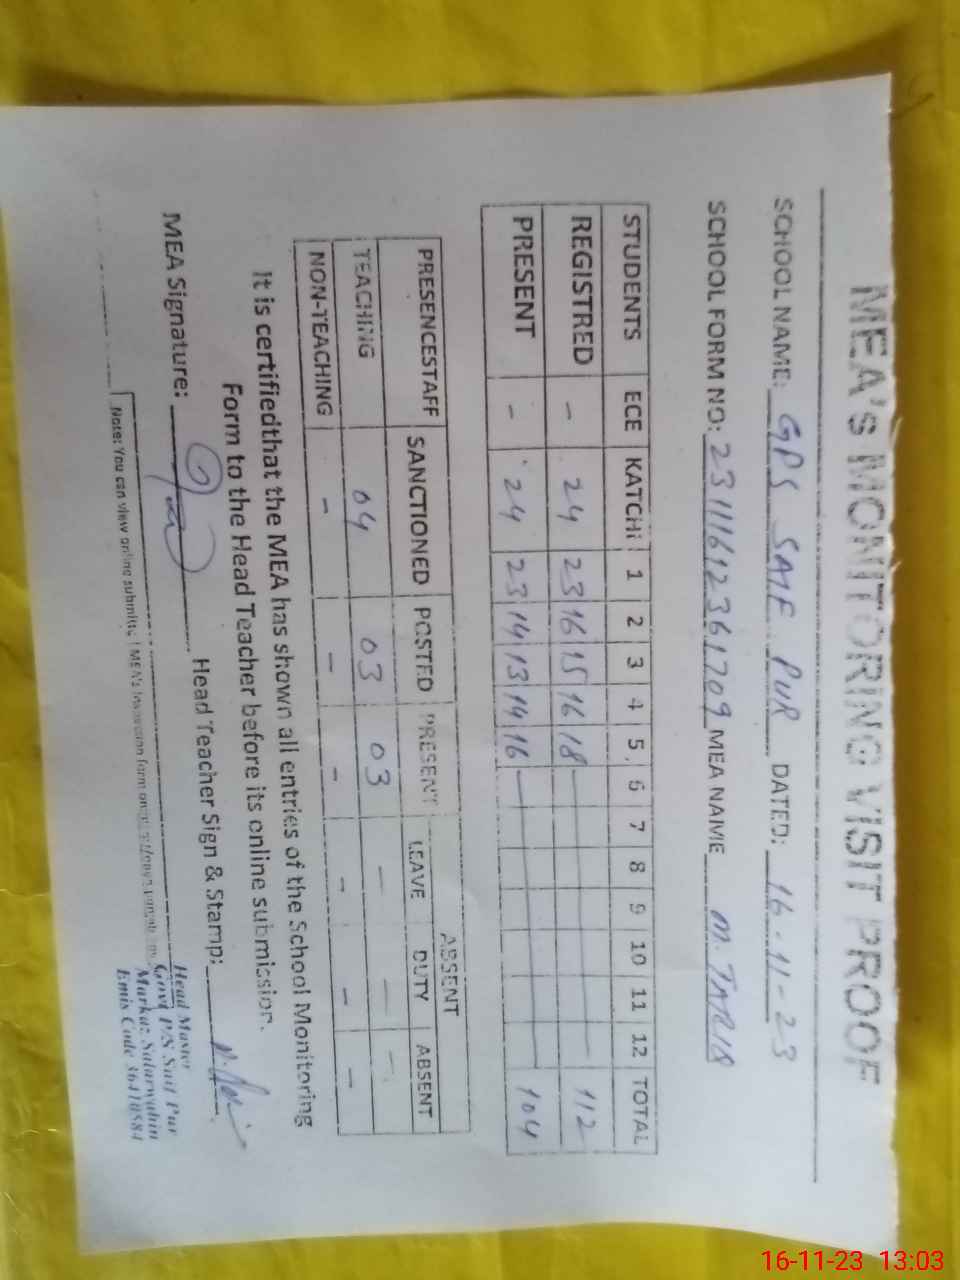 MEA'S MONITORING VISIT PROOF
SCHOOL NAME: GPS SAIF PUR DATED: 16-11-23
SCHOOL FORM NO: 23111612361709 MEA NAME M. TARIQ
STUDENTS ECE KATCHI 1 2 3 4 5 6 7 8 9 10 11 12 TOTAL
REGISTRED - 24 23 16 15 16 18 - 112
PRESENT - 24 23 14 13 14 16 - 104
ABSENT
PRESENCESTAFF SANCTIONED POSTED PRESENT LEAVE DUTY ABSENT
TEACHING 04 03 03 - - -
NON-TEACHING - - - - - -
It is certifiedthat the MEA has shown all entries of the School Monitoring
Form to the Head Teacher before its online submission.
MEA Signature: Head Teacher Sign & Stamp:
Head Master
Govt P/S Saif Pur
Markaz Salarwahin
Emis Code 36410584
Note: You can view online submitted MEA's
16-11-23 13:03